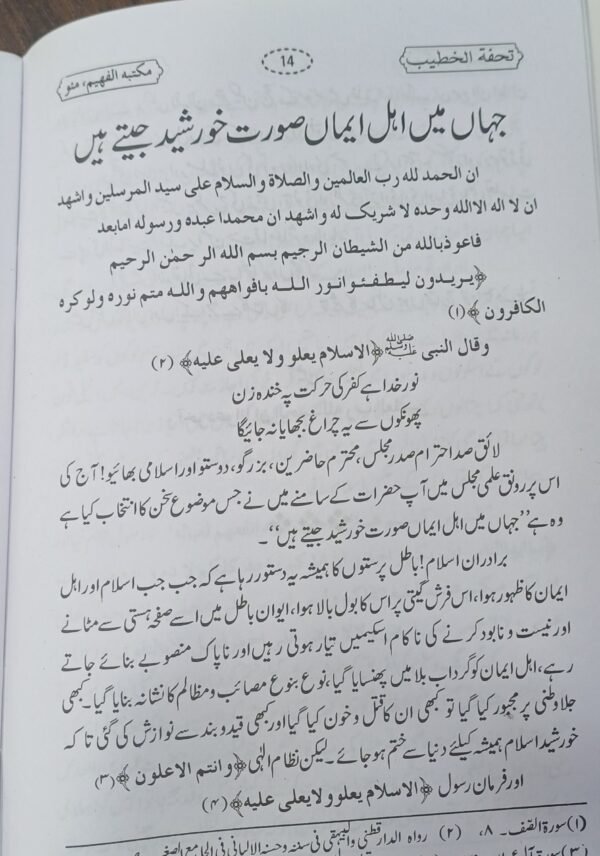 تحفة الخطيب
14
مكتبه الفهيم، مئو
جہاں میں اہل ایماں صورت خورشید جیتے ہیں
ان الحمد لله رب العالمين والصلاة والسلام على سيد المرسلين واشهد
ان لا اله الاالله وحده لا شريك له واشهد ان محمدا عبده ورسوله امابعد
فاعوذبالله من الشيطان الرجيم بسم الله الرحمٰن الرحيم
﴿يريدون ليطفئوا نور الله بافواههم والله متم نوره ولو كره
الكافرون﴾(۱)
وقال النبی ﷺ ﴿الاسلام يعلو ولا يعلى عليه﴾ (۲)
نور خدا ہے کفر کی حرکت پہ خندہ زن
پھونکوں سے یہ چراغ بجھایا نہ جائیگا
لائق صد احترام صدر مجلس، محترم حاضرین، بزرگو، دوستو اور اسلامی بھائیو! آج کی
اس پر رونق علمی مجلس میں آپ حضرات کے سامنے میں نے جس موضوع سخن کا انتخاب کیا ہے
وہ ہے ”جہاں میں اہل ایماں صورت خورشید جیتے ہیں“۔
برادران اسلام! باطل پرستوں کا ہمیشہ یہ دستور رہا ہے کہ جب جب اسلام اور اہل
ایمان کا ظہور ہوا، اس فرش گیتی پر اس کا بول بالا ہوا، ایوان باطل میں اسے صفحہ ہستی سے مٹانے
اور نیست و نابود کرنے کی ناکام اسکیمیں تیار ہوتی رہیں اور ناپاک منصوبے بنائے جاتے
رہے، اہل ایمان کو گرداب بلا میں پھنسایا گیا، نوع بنوع مصائب و مظالم کا نشانہ بنایا گیا۔ کبھی
جلا وطنی پر مجبور کیا گیا تو کبھی ان کا قتل و خون کیا گیا اور کبھی قید و بند سے نوازش کی گئی تاکہ
خورشید اسلام ہمیشہ کیلئے دنیا سے ختم ہو جائے۔ لیکن نظام الٰہی ﴿وانتم الاعلون﴾(۳)
اور فرمان رسول ﴿الاسلام يعلو ولا يعلى عليه﴾ (۴)
(۱) سورۃ الصّف۔ ۸، (۲) رواہ الدارقطنی والبیہقی فی سننہ وحسنہ الالبانی فی الجامع الصغیر
(۳) سورۃ